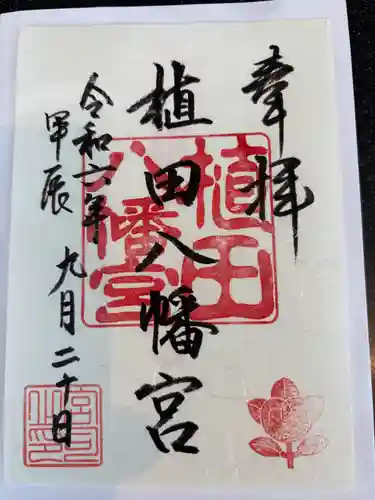 奉拝
植田八幡宮
令和六年
甲辰 九月二十日
植田
八幡宮
宮司之印